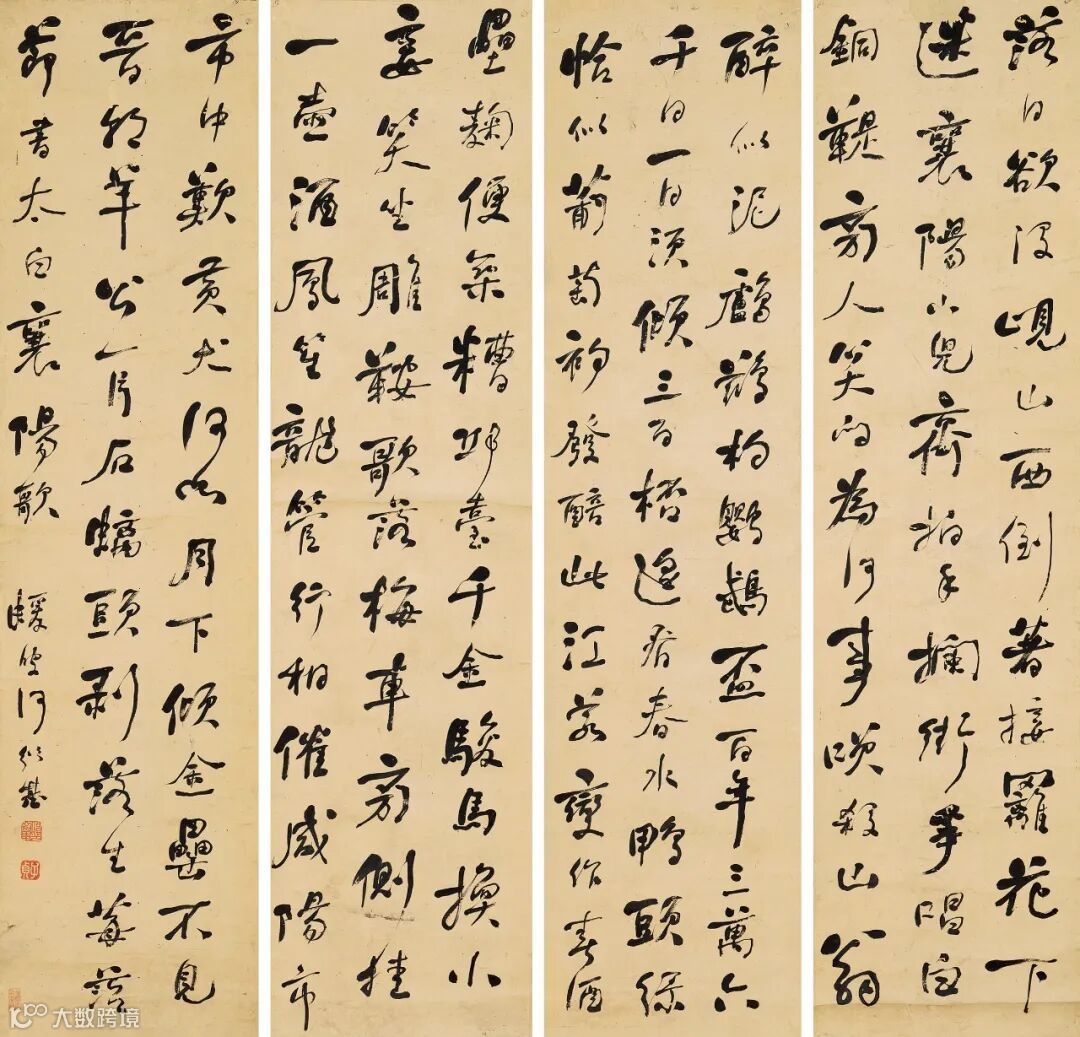 落日欲沒峴山西倒著接䍦花下
迷襄陽小兒齊拍手攔街爭唱白
銅鞮旁人笑問為何事咲殺山翁
醉似泥鸕鷀杓鸚鵡盃百年三萬六
千日一日須傾三百桮遙看春水鴨頭綠
恰似葡萄初發醅此江若變作春酒
壘麴便築糟邱臺千金駿馬換小
妾笑坐雕鞍歌落梅車旁側挂
一壺酒鳳笙龍管行相催咸陽市
市中歎黃犬何如月下傾金罍不見
晉朝羊公一片石螭頭剥落生莓苔
節書太白襄陽歌
蝯叟何紹基
大数跨境